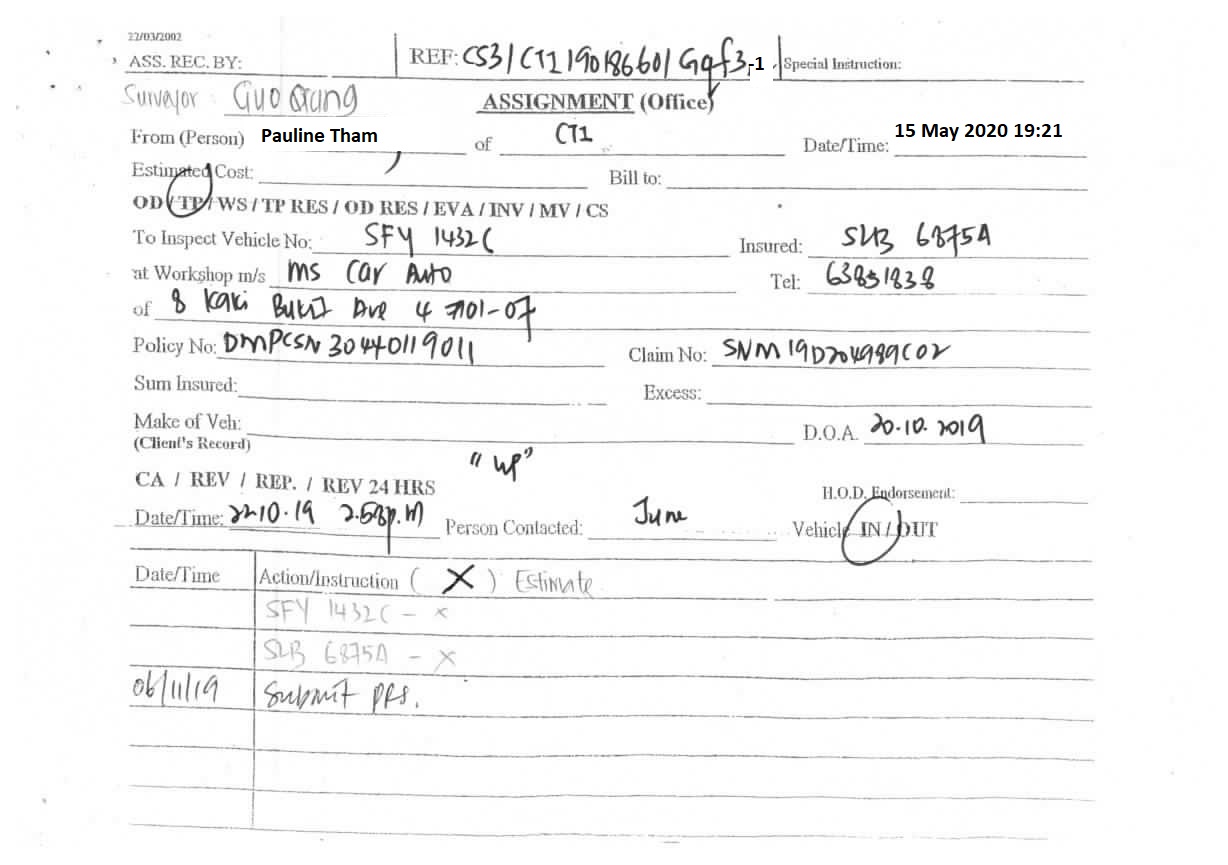 22/03/2002
ASS. REC. BY: REF: CS3/CT119018660/Gqf3,-1 Special Instruction:
Surveyor: Guo Qiang ASSIGNMENT (Office)
From (Person) Pauline Tham of CT1 Date/Time: 15 May 2020 19:21
Estimated Cost: Bill to:
OD / TP / WS / TP RES / OD RES / EVA / INV / MV / CS
To Inspect Vehicle No: SFY 1432C Insured: SLB 6875A
at Workshop m/s Ms Car Auto Tel: 63851838
of 8 Kaki Bukit Ave 4 #01-07
Policy No: DMPCSN30440119011 Claim No: SNM19D204989C02
Sum Insured: Excess:
Make of Veh: D.O.A. 20.10.2019
(Client's Record)
"WP"
CA / REV / REP. / REV 24 HRS H.O.D. Endorsement:
Date/Time: 22.10.19 2.58p.m Person Contacted: June Vehicle IN / OUT
Date/Time Action/Instruction ( X ) Estimate
SFY 1432C - x
SLB 6875A - x
06/11/19 Submit PRS.